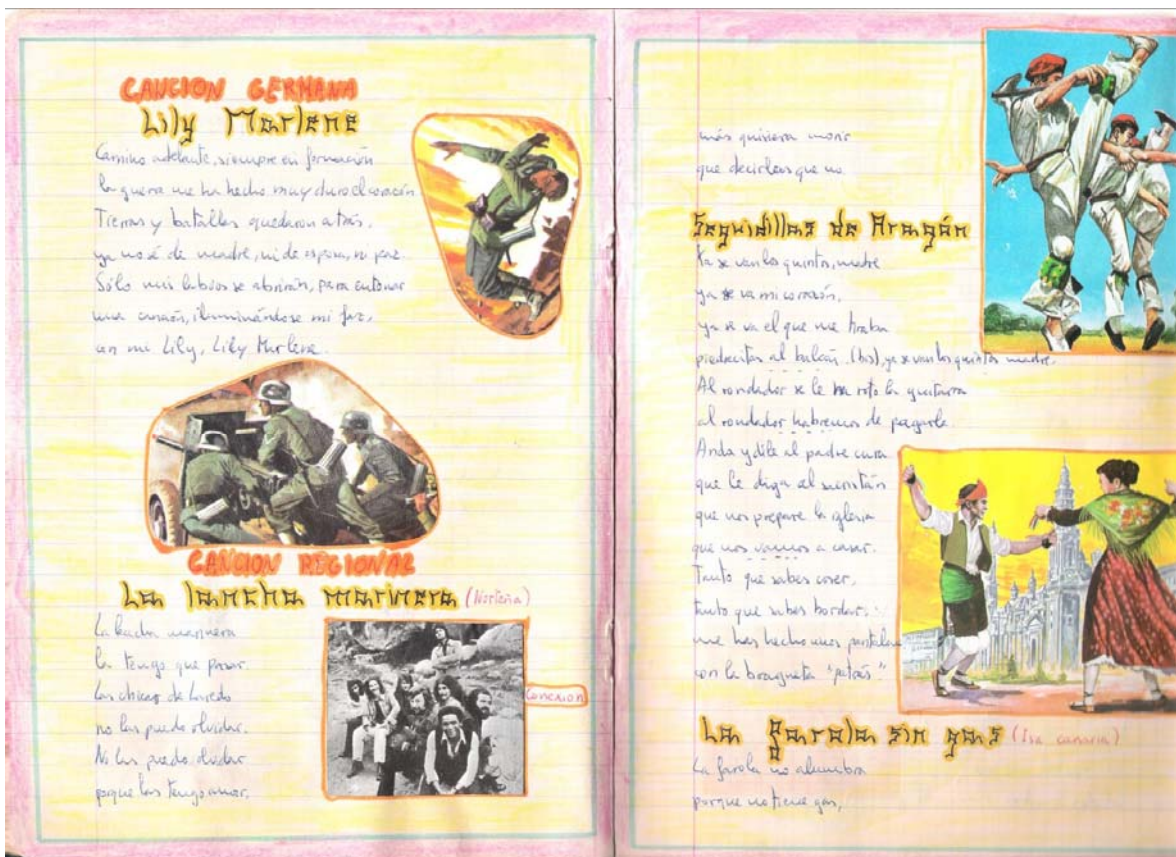 CANCION GERMANA
Lily Marlene
Camino adelante, siempre en formación
la guerra me ha hecho muy duro el corazón
Tierras y batallas quedaron atrás,
ya no sé de madre, ni de esposa, ni paz.
Sólo mis labios se abrirán, para entonar
una canción, iluminándose mi faz,
con mi Lily, Lily Marlene.
CANCION REGIONAL
La lancha marinera (Norteña)
La lancha marinera
la tengo que pasar.
Las chicas de Laredo
no las puedo olvidar.
No las puedo olvidar
porque las tengo amor,
Conexion
más quisiera morir
que decirlas que no.
Seguidillas de Aragón
Ya se van los quintos, madre
ya se va mi corazón,
ya se va el que me tiraba
piedrecitas al balcón. (bis), ya se van los quintos madre.
Al rondador se le ha roto la guitarra
al rondador habremos de pagarla.
Anda y dile al padre cura
que le diga al sacristán
que nos prepare la iglesia
que nos vamos a casar.
Tanto que sabes coser,
tanto que sabes bordar,
me has hecho unos
con la bragueta "patrás"
La farola sin gas (Isa canaria)
La farola no alumbra
porque no tiene gas,